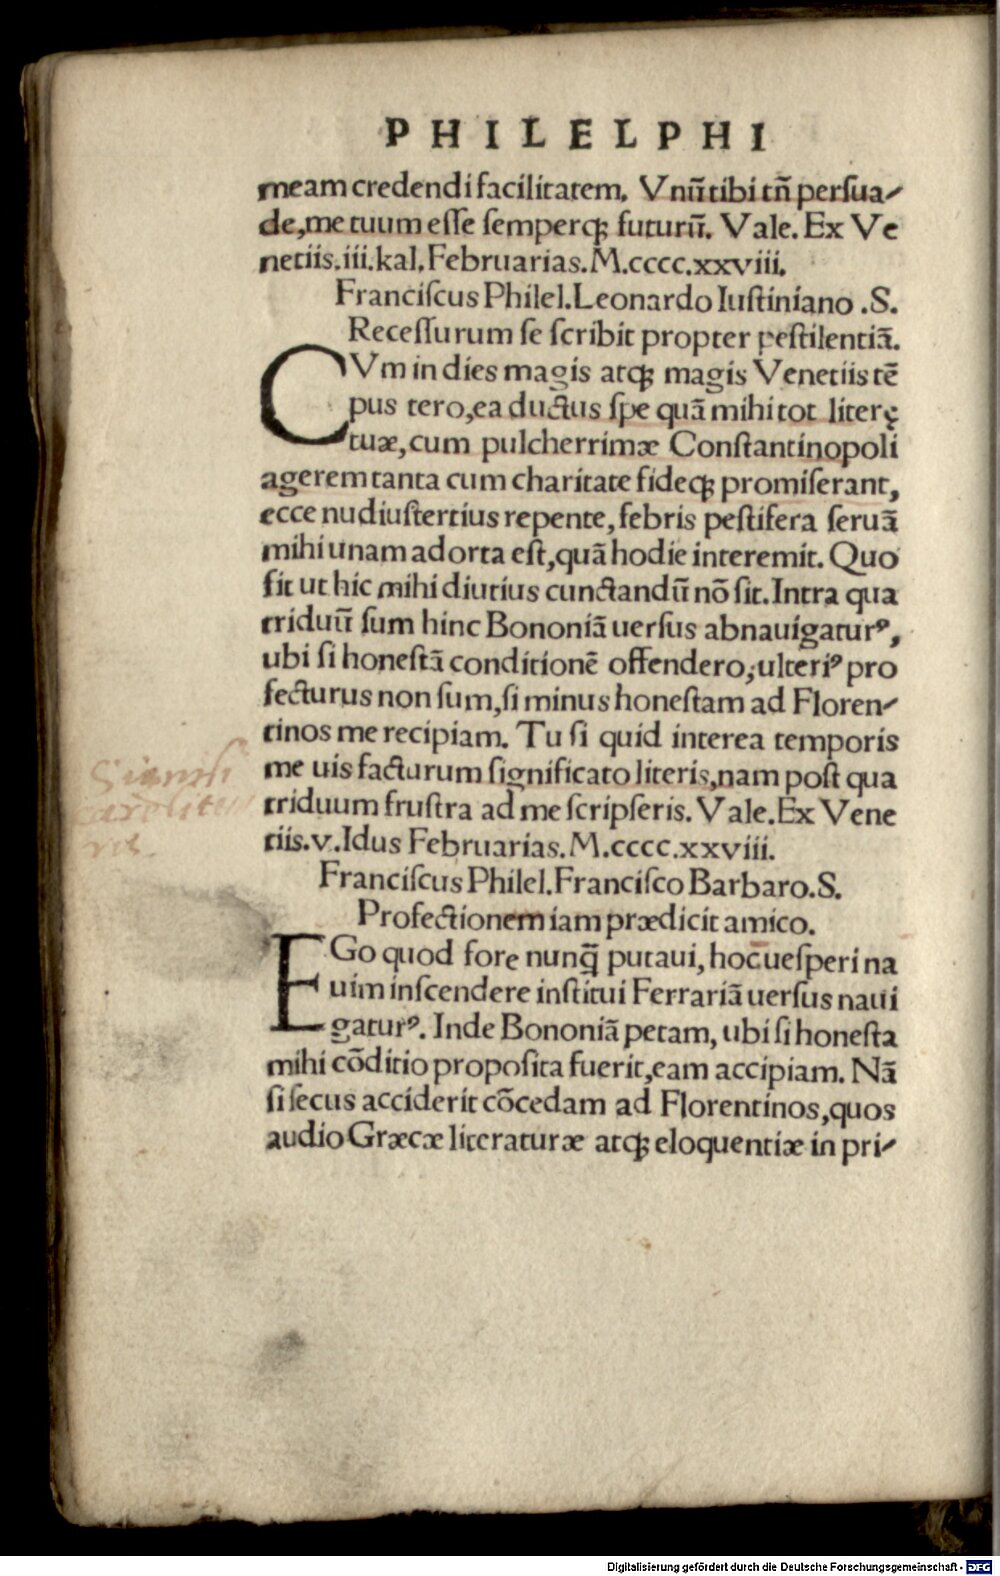 PHILELPHI
meam credendi facilitatem. Vnū tibi tñ persua-
de, me tuum esse semperq; futurū. Vale. Ex Ve
netiis. iii. kal. Februarias. M.cccc.xxviii.
Franciscus Philel. Leonardo Iustiniano .S.
Recessurum se scribit propter pestilentiā.
CVm in dies magis atq; magis Venetiis tē
pus tero, ea ductus spe quā mihi tot literę
tuæ, cum pulcherrimæ Constantinopoli
agerem tanta cum charitate fideq; promiserant,
ecce nudiustertius repente, febris pestifera seruā
mihi unam adorta est, quā hodie interemit. Quo
fit ut hic mihi diutius cunctandū nō sit. Intra qua
triduū sum hinc Bononiā uersus abnauigaturꝰ,
ubi si honestā conditionē offendero, ulteriꝰ pro
fecturus non sum, si minus honestam ad Floren-
tinos me recipiam. Tu si quid interea temporis
me uis facturum significato literis, nam post qua
triduum frustra ad me scripseris. Vale. Ex Vene
tiis. v. Idus Februarias. M.cccc.xxviii.
Franciscus Philel. Francisco Barbaro. S.
Profectionem iam prædicit amico.
EGo quod fore nunq̄ putaui, hoc uesperi na
uim inscendere institui Ferrariā uersus naui
gaturꝰ. Inde Bononiā petam, ubi si honesta
mihi cōditio proposita fuerit, eam accipiam. Nā
si secus acciderit cōcedam ad Florentinos, quos
audio Græcæ literaturæ atq; eloquentiæ in pri-
Digitalisierung gefördert durch die Deutsche Forschungsgemeinschaft - DFG